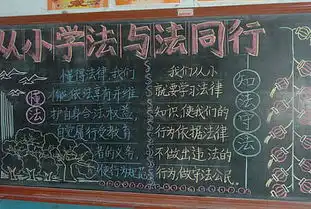 从小学法与法同行
懂法
懂得法律,我们
护自身合法权益,
自觉履行受教育
者的义务,
我们从小
就要学习法律
知识,使我们的
行为依据法律
不做出违法的
行为,做守法公民
知法守法